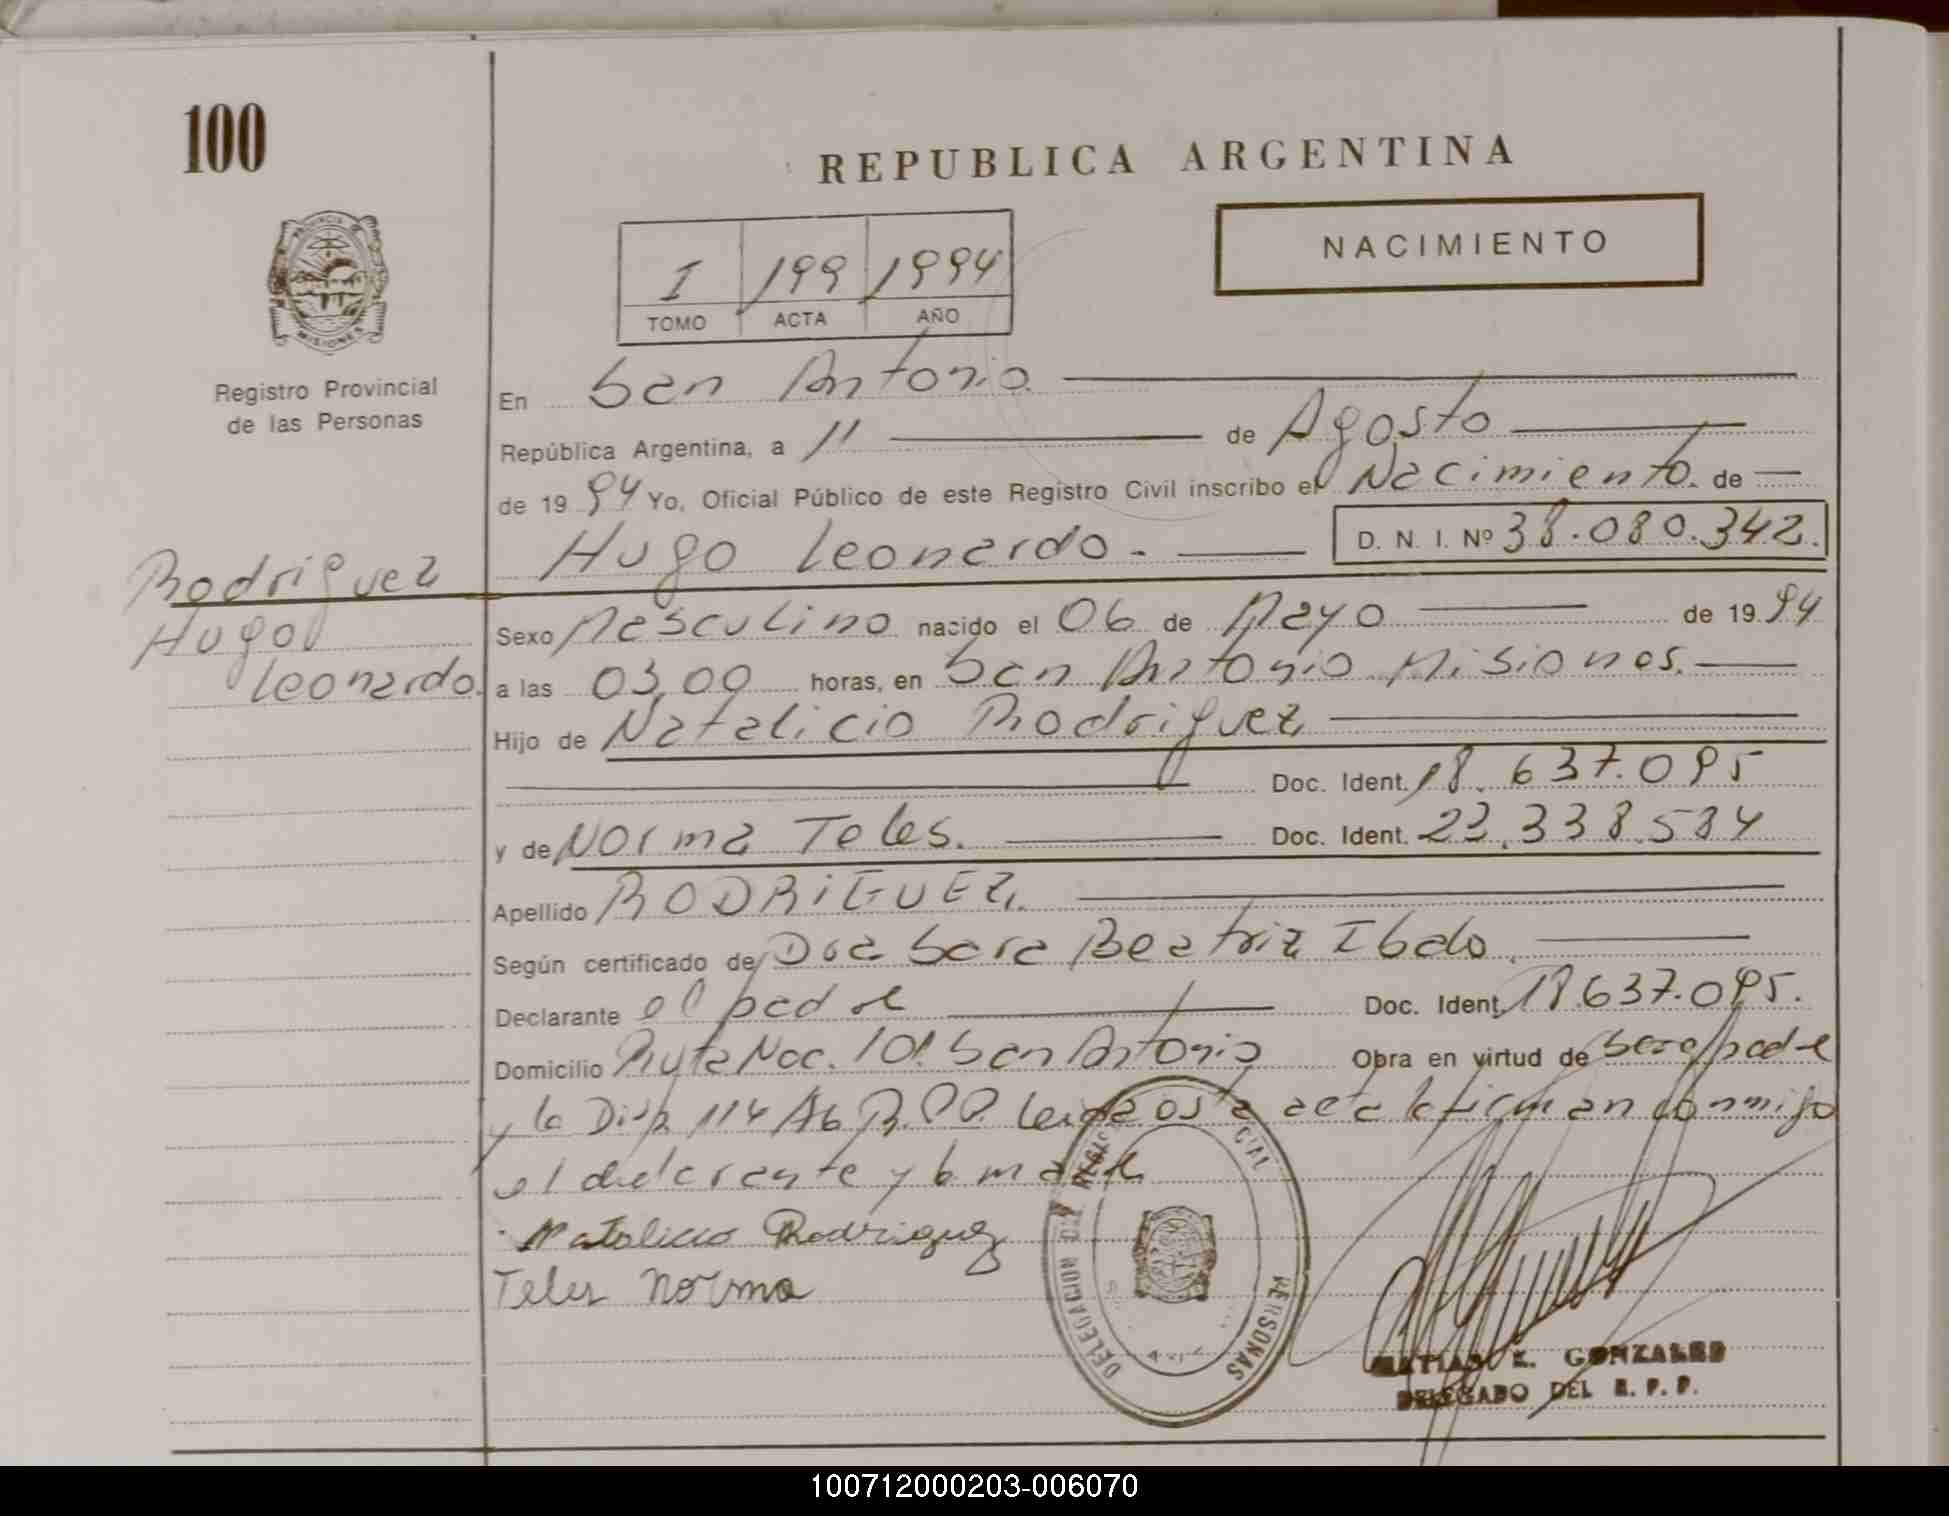 100
REPUBLICA ARGENTINA
NACIMIENTO
I 199 1994
TOMO ACTA AÑO
PROVINCIA DE MISIONES
Registro Provincial
de las Personas
En San Antonio
República Argentina, a 11 de Agosto
de 1994 Yo, Oficial Público de este Registro Civil inscribo el Nacimiento. de
Hugo Leonardo.- D. N. I. Nº 38.080.342.
Rodriguez
Hugo
Leonardo.
Sexo Masculino nacido el 06 de Mayo de 1994
a las 03,00 horas, en San Antonio Misiones.
Hijo de Natalicio Rodriguez
Doc. Ident. 18.637.095
y de Norma Teles. Doc. Ident. 22.338.584
Apellido RODRIGUEZ.
Según certificado de Dra Sara Beatriz
Declarante el padre Doc. Ident. 18.637.095.
Domicilio Ruta Nac. 101. San Antonio Obra en virtud de ser el padre
y la Disp. 114/86 R.P.P. Leida esta acta la firman conmigo
el declarante y la madre
Natalicio Rodriguez
Teles Norma
DELEGACION DEL PERSONAS
MATIAS E. GONZALES
DELEGADO DEL R. P. P.
100712000203-006070